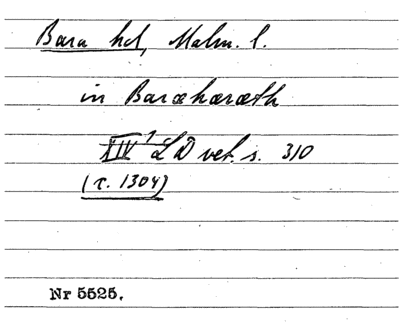 Bara hd, Malm. l.
in Baræhæræth
XIV 1 LD vet. s. 310
(c. 1304)
Nr 5525.